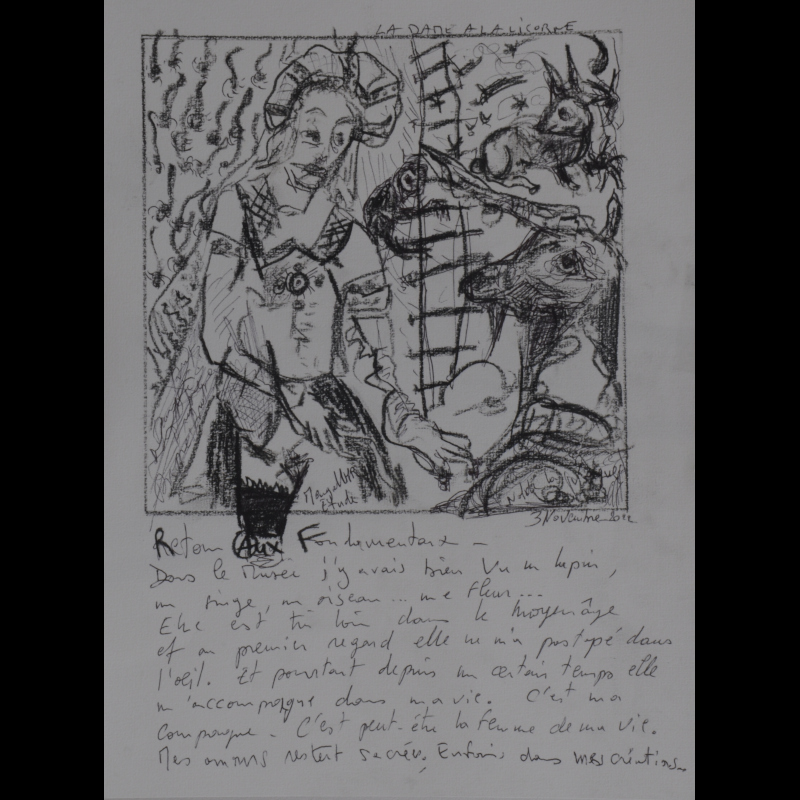 LA DAME A LA LICORNE
étude
3 Novembre 2022
Retour Aux Fondamentaux -
Dans le Musée j'y avais bien vu un lapin,
un singe, un oiseau... une fleur...
Elle est très loin dans le moyen âge
et au premier regard elle ne m'a pas tapé dans
l'oeil. Et pourtant depuis un certain temps elle
m'accompagne dans ma vie. C'est ma
compagne - C'est peut-être la femme de ma vie.
Mes amours restent sacrées. Enfouis dans mes créations...